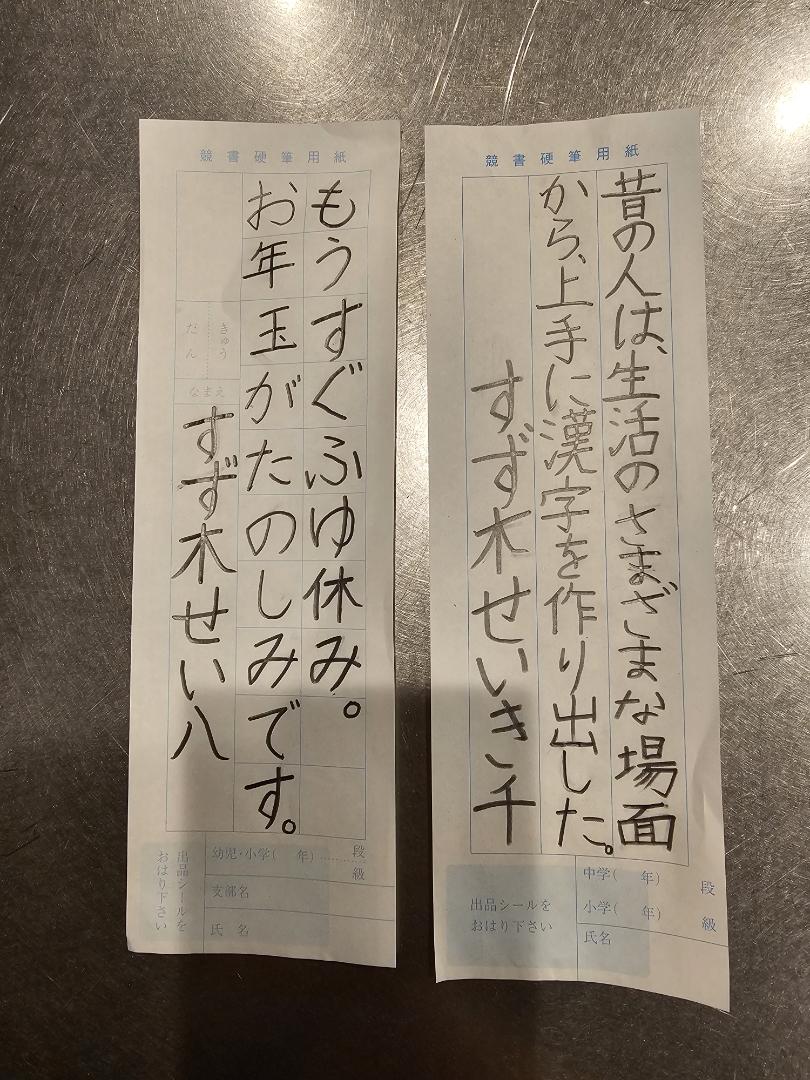 競書硬筆用紙
昔の人は、生活のさまざまな場面
から、上手に漢字を作り出した。
すず木せいき千
出品シールを
おはり下さい
中学( 年)
小学( 年)
段
級
氏名
競書硬筆用紙
もうすぐふゆ休み。
お年玉がたのしみです。
きゅう
だん
なまえ
すず木せい八
幼児・小学( 年)……段
級
支部名
氏名
出品シールを
おはり下さい